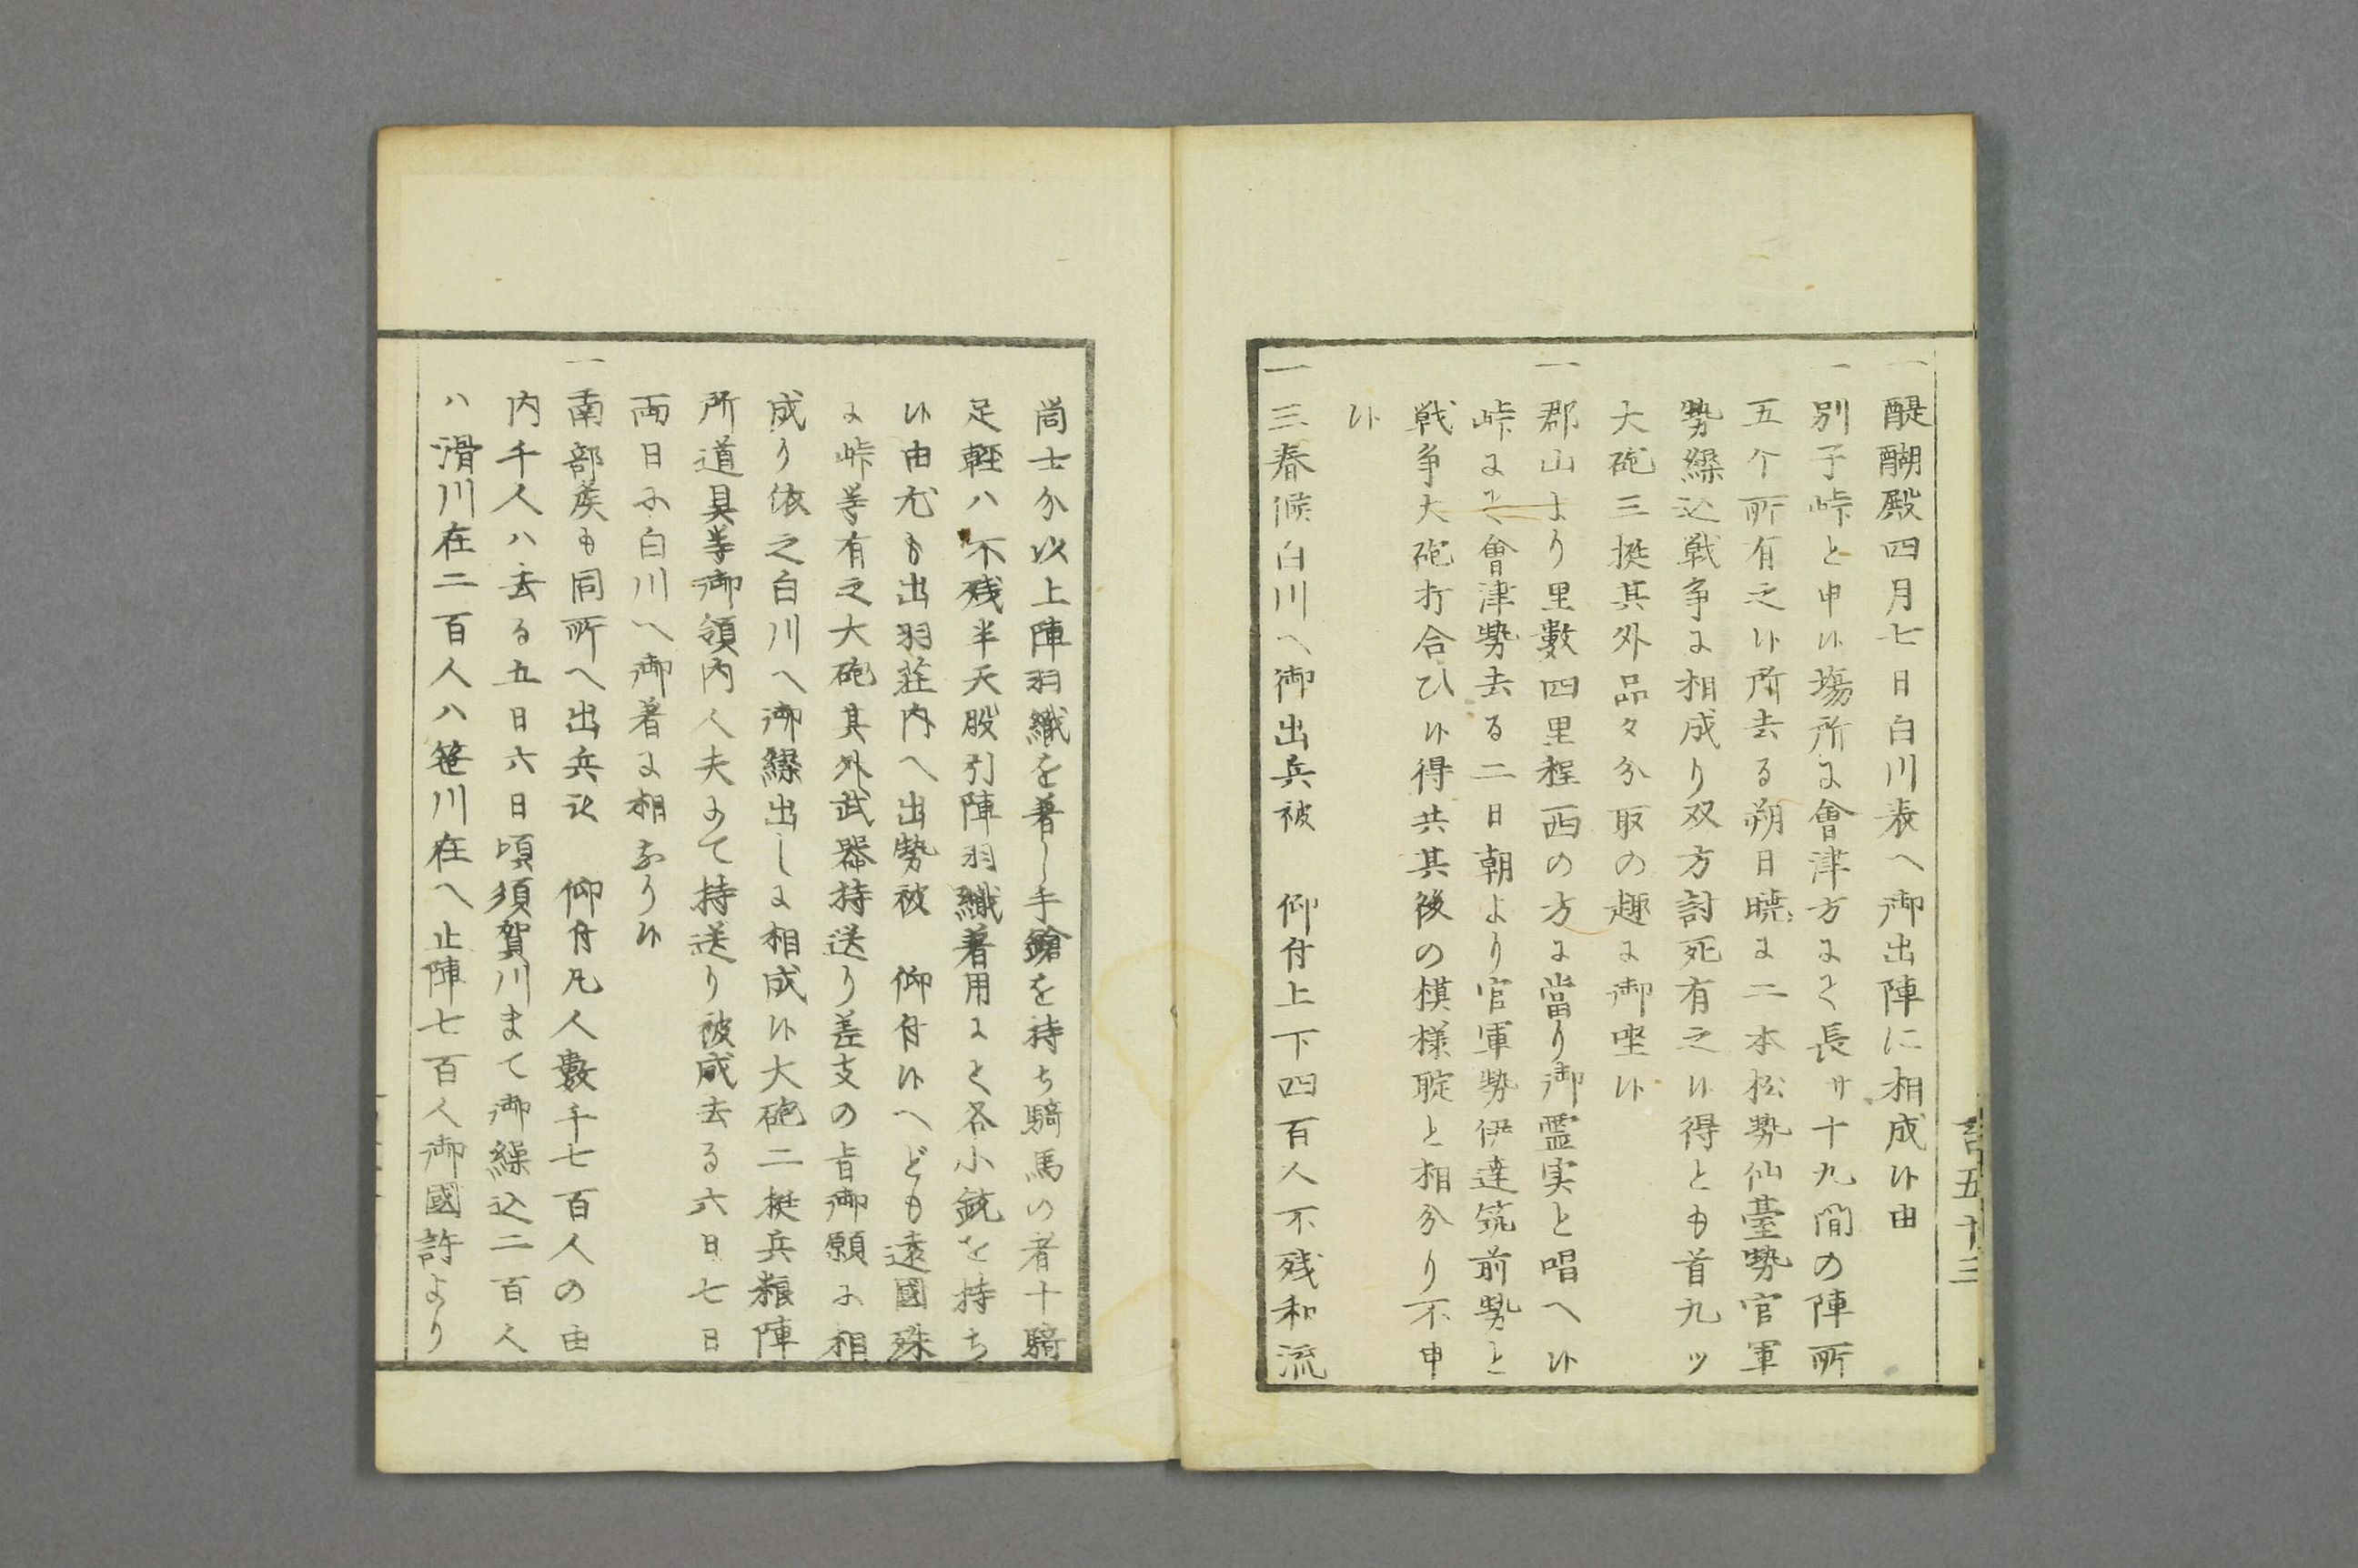 一醍醐殿四月七日白川表へ御出陣に相成候由
一別子峠と申候塲所に會津方にて長サ十九間の陣所
五个所有之候所去る朔日暁に二本松勢仙臺勢官軍
勢繰込戦争に相成り双方討死有之候得とも首九ッ
大砲三挺其外品々分取の趣に御座候
一郡山より里數四里程西の方に當り御霊実と唱へ候
峠にて會津勢去る二日朝より官軍勢伊達筑前勢と
戦争大砲打合ひ候得共其後の模様聢と相分り不申
候
一三春候白川へ御出兵被　仰付上下四百人不残和流
尚士分以上陣羽織を著し手鎗を持ち騎馬の者十騎
足軽ハ不残半天股引陣羽織著用にて各小銃を持ち
候由尤も出羽荘内へ出勢被　仰付候へども遠國殊
に峠等有之大砲其外武器持送り差支の旨御願に相
成り依之白川へ御繰出しに相成候大砲二挺兵粮陣
所道具等御領内人夫にて持送り被成去る六日七日
両日に白川へ御著に相なり候
一南部矦も同所へ出兵被　仰付凡人數千七百人の由
内千人ハ去る五日六日頃須賀川まて御繰込二百人
ハ滑川在二百人ハ笹川在へ止陣七百人御國許より
五十三